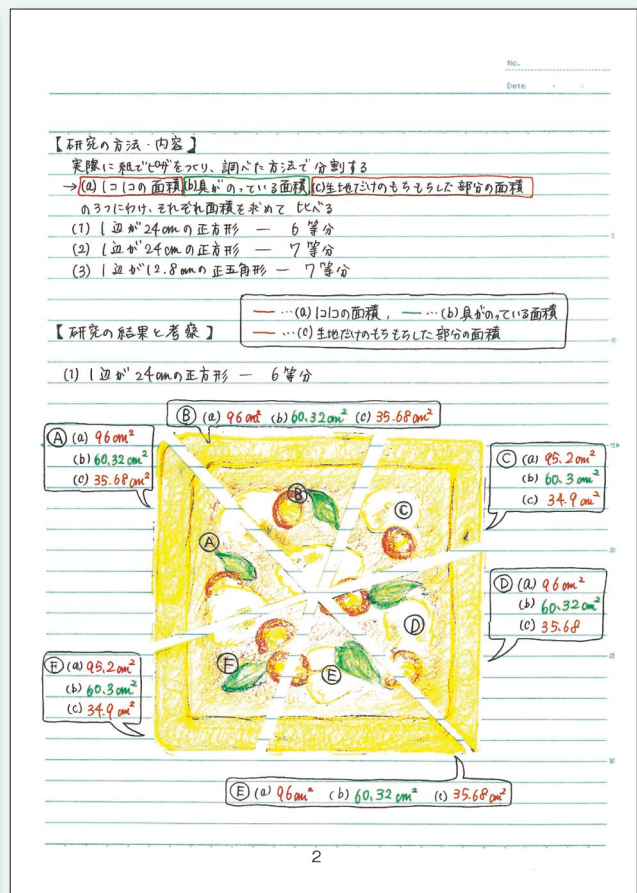 No.
Date
【研究の方法・内容】
実際に紙でピザをつくり、調べた方法で分割する
→(a)1コ1コの面積(b)具がのっている面積(c)生地だけのもちもちした部分の面積
の3つにわけ、それぞれ面積を求めて比べる
(1) 1辺が24cmの正方形 — 6等分
(2) 1辺が24cmの正方形 — 7等分
(3) 1辺が12.8cmの正五角形 — 7等分
— …(a)1コ1コの面積, — …(b)具がのっている面積
— …(c)生地だけのもちもちした部分の面積
【研究の結果と考察】
(1) 1辺が24cmの正方形 — 6等分
Ⓑ (a) 96cm² (b) 60.32cm² (c) 35.68cm²
Ⓐ (a) 96cm²
(b) 60.32cm²
(c) 35.68cm²
Ⓒ (a) 95.2cm²
(b) 60.3cm²
(c) 34.9cm²
Ⓑ
Ⓒ
Ⓐ
Ⓓ (a) 96cm²
(b) 60.32cm²
(c) 35.68
Ⓓ
Ⓕ (a) 95.2cm²
(b) 60.3cm²
(c) 34.9cm²
Ⓕ
Ⓔ
Ⓔ (a) 96cm² (b) 60.32cm² (c) 35.68cm²
5
10
15
20
25
30
2